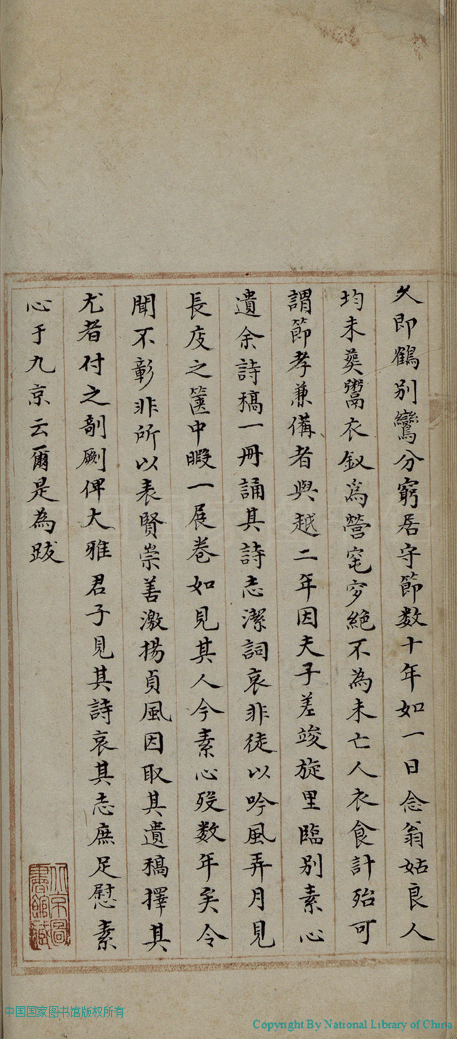 久即鶴別鸞分窮居守節数十年如一日念翁姑良人
均未葬鬻衣釵為營窀穸絶不為未亡人衣食計殆可
謂節孝兼備者與越二年因夫子差竣旋里臨別素心
遺余詩稿一冊誦其詩志潔詞哀非徒以吟風弄月見
長庋之篋中暇一展卷如見其人今素心歿数年矣令
聞不彰非所以表賢崇善激揚貞風因取其遺稿擇其
尤者付之剞劂俾大雅君子見其詩哀其志庶足慰素
心于九京云爾是為跋
北京圖書館藏
中国国家图书馆版权所有
Copyright By National Library of China